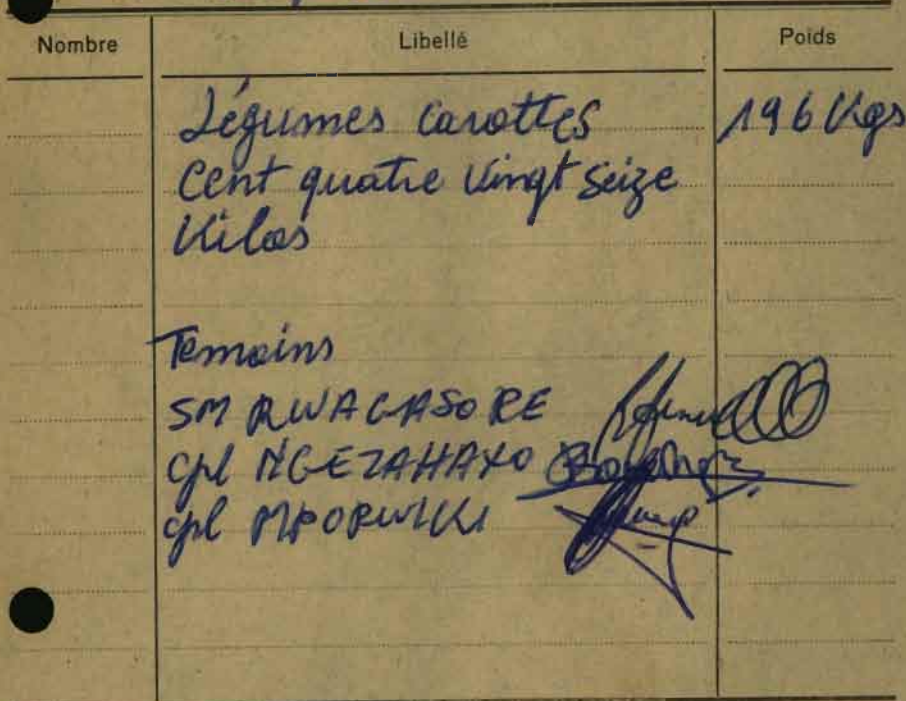 Nombre Libellé Poids
Légumes carottes 196 Kgs
Cent quatre vingt seize
Kilos
Temoins
SM RWAGASORE
Cpl NGEZAHAYO
Cpl